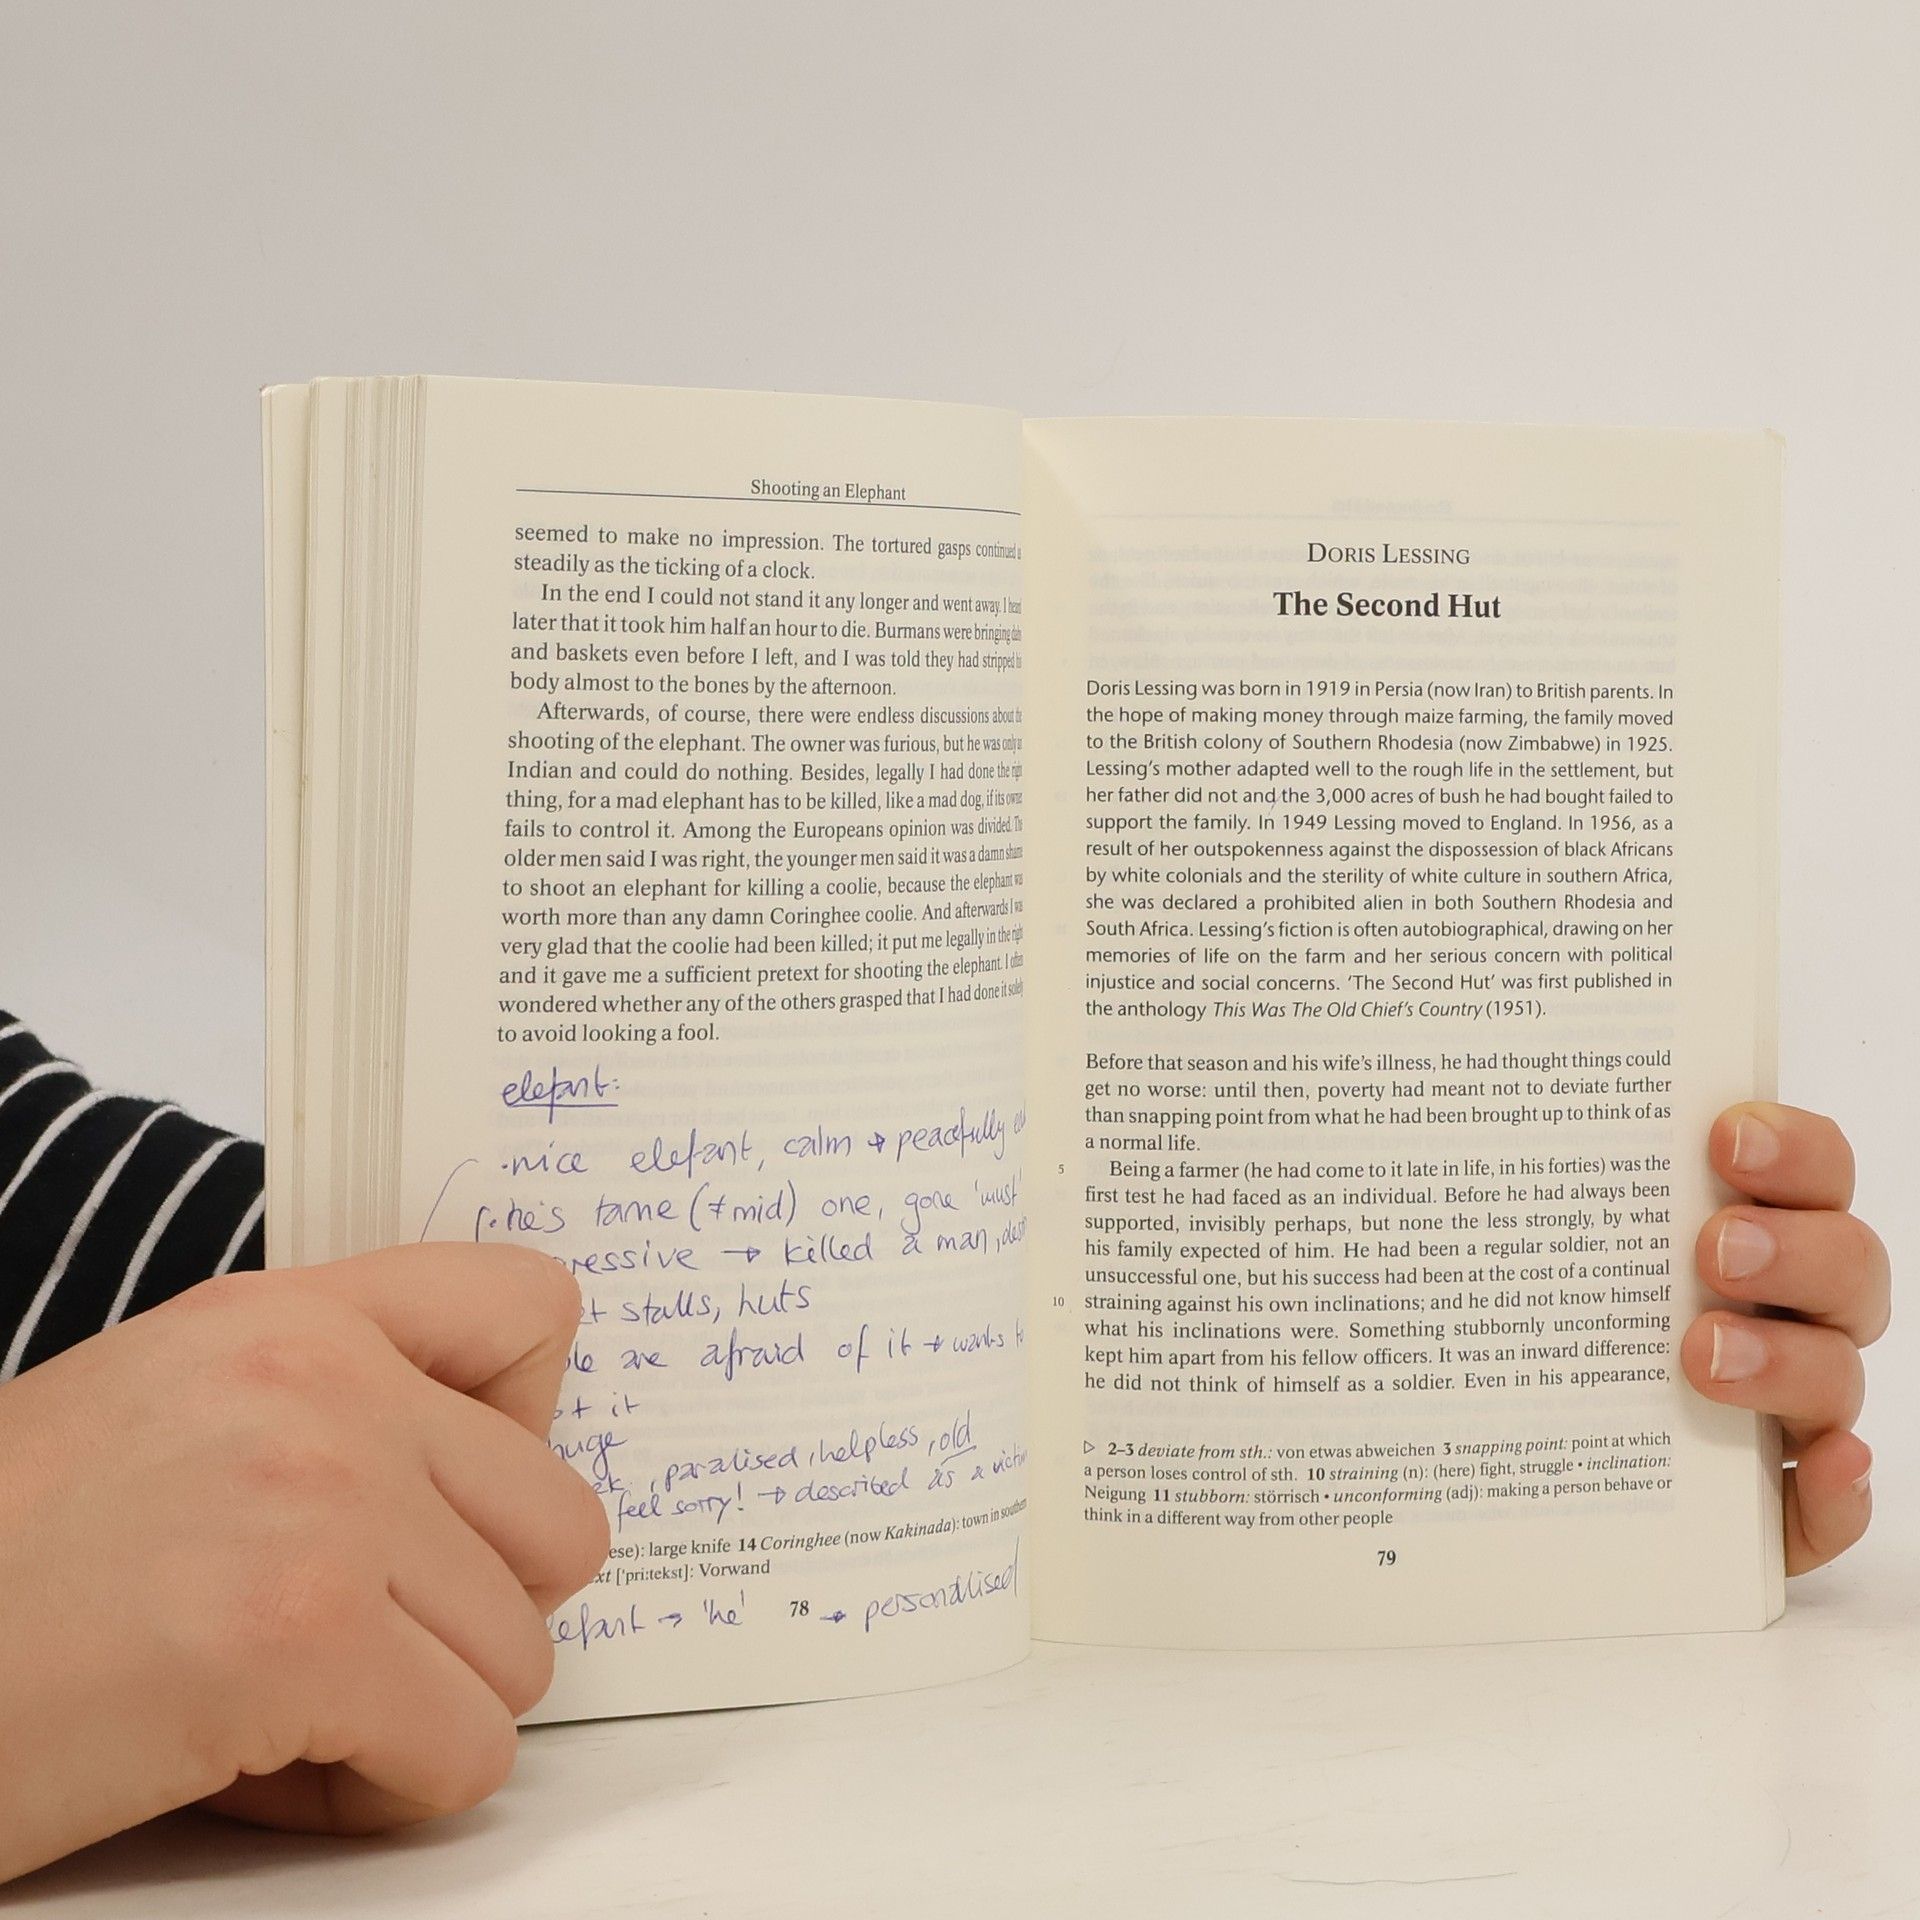 Shooting an Elephant
seemed to make no impression. The tortured gasps continued as
steadily as the ticking of a clock.
In the end I could not stand it any longer and went away. I heard
later that it took him half an hour to die. Burmans were bringing dahs
and baskets even before I left, and I was told they had stripped his
body almost to the bones by the afternoon.
Afterwards, of course, there were endless discussions about the
shooting of the elephant. The owner was furious, but he was only an
Indian and could do nothing. Besides, legally I had done the right
thing, for a mad elephant has to be killed, like a mad dog, if its owner
fails to control it. Among the Europeans opinion was divided. The
older men said I was right, the younger men said it was a damn shame
to shoot an elephant for killing a coolie, because the elephant was
worth more than any damn Coringhee coolie. And afterwards I was
very glad that the coolie had been killed; it put me legally in the right
and it gave me a sufficient pretext for shooting the elephant. I often
wondered whether any of the others grasped that I had done it solely
to avoid looking a fool.
elefant:
·nice elefant, calm → peacefully
·he's tame (≠ mid) one, gone 'must'
ressive → killed a man,
stalls, huts
are afraid of it → wants to
it
huge
, paralised, helpless, old
feel sorry! → described as a victim
ese): large knife 14 Coringhee (now Kakinada): town in southern
ext ['pri:tekst]: Vorwand
efant → 'he' → personalised
78
DORIS LESSING
The Second Hut
Doris Lessing was born in 1919 in Persia (now Iran) to British parents. In
the hope of making money through maize farming, the family moved
to the British colony of Southern Rhodesia (now Zimbabwe) in 1925.
Lessing's mother adapted well to the rough life in the settlement, but
her father did not and the 3,000 acres of bush he had bought failed to
support the family. In 1949 Lessing moved to England. In 1956, as a
result of her outspokenness against the dispossession of black Africans
by white colonials and the sterility of white culture in southern Africa,
she was declared a prohibited alien in both Southern Rhodesia and
South Africa. Lessing's fiction is often autobiographical, drawing on her
memories of life on the farm and her serious concern with political
injustice and social concerns. 'The Second Hut' was first published in
the anthology This Was The Old Chief's Country (1951).
Before that season and his wife's illness, he had thought things could
get no worse: until then, poverty had meant not to deviate further
than snapping point from what he had been brought up to think of as
a normal life.
5 Being a farmer (he had come to it late in life, in his forties) was the
first test he had faced as an individual. Before he had always been
supported, invisibly perhaps, but none the less strongly, by what
his family expected of him. He had been a regular soldier, not an
unsuccessful one, but his success had been at the cost of a continual
10 straining against his own inclinations; and he did not know himself
what his inclinations were. Something stubbornly unconforming
kept him apart from his fellow officers. It was an inward difference:
he did not think of himself as a soldier. Even in his appearance,
▷ 2–3 deviate from sth.: von etwas abweichen 3 snapping point: point at which
a person loses control of sth. 10 straining (n): (here) fight, struggle • inclination:
Neigung 11 stubborn: störrisch • unconforming (adj): making a person behave or
think in a different way from other people
79